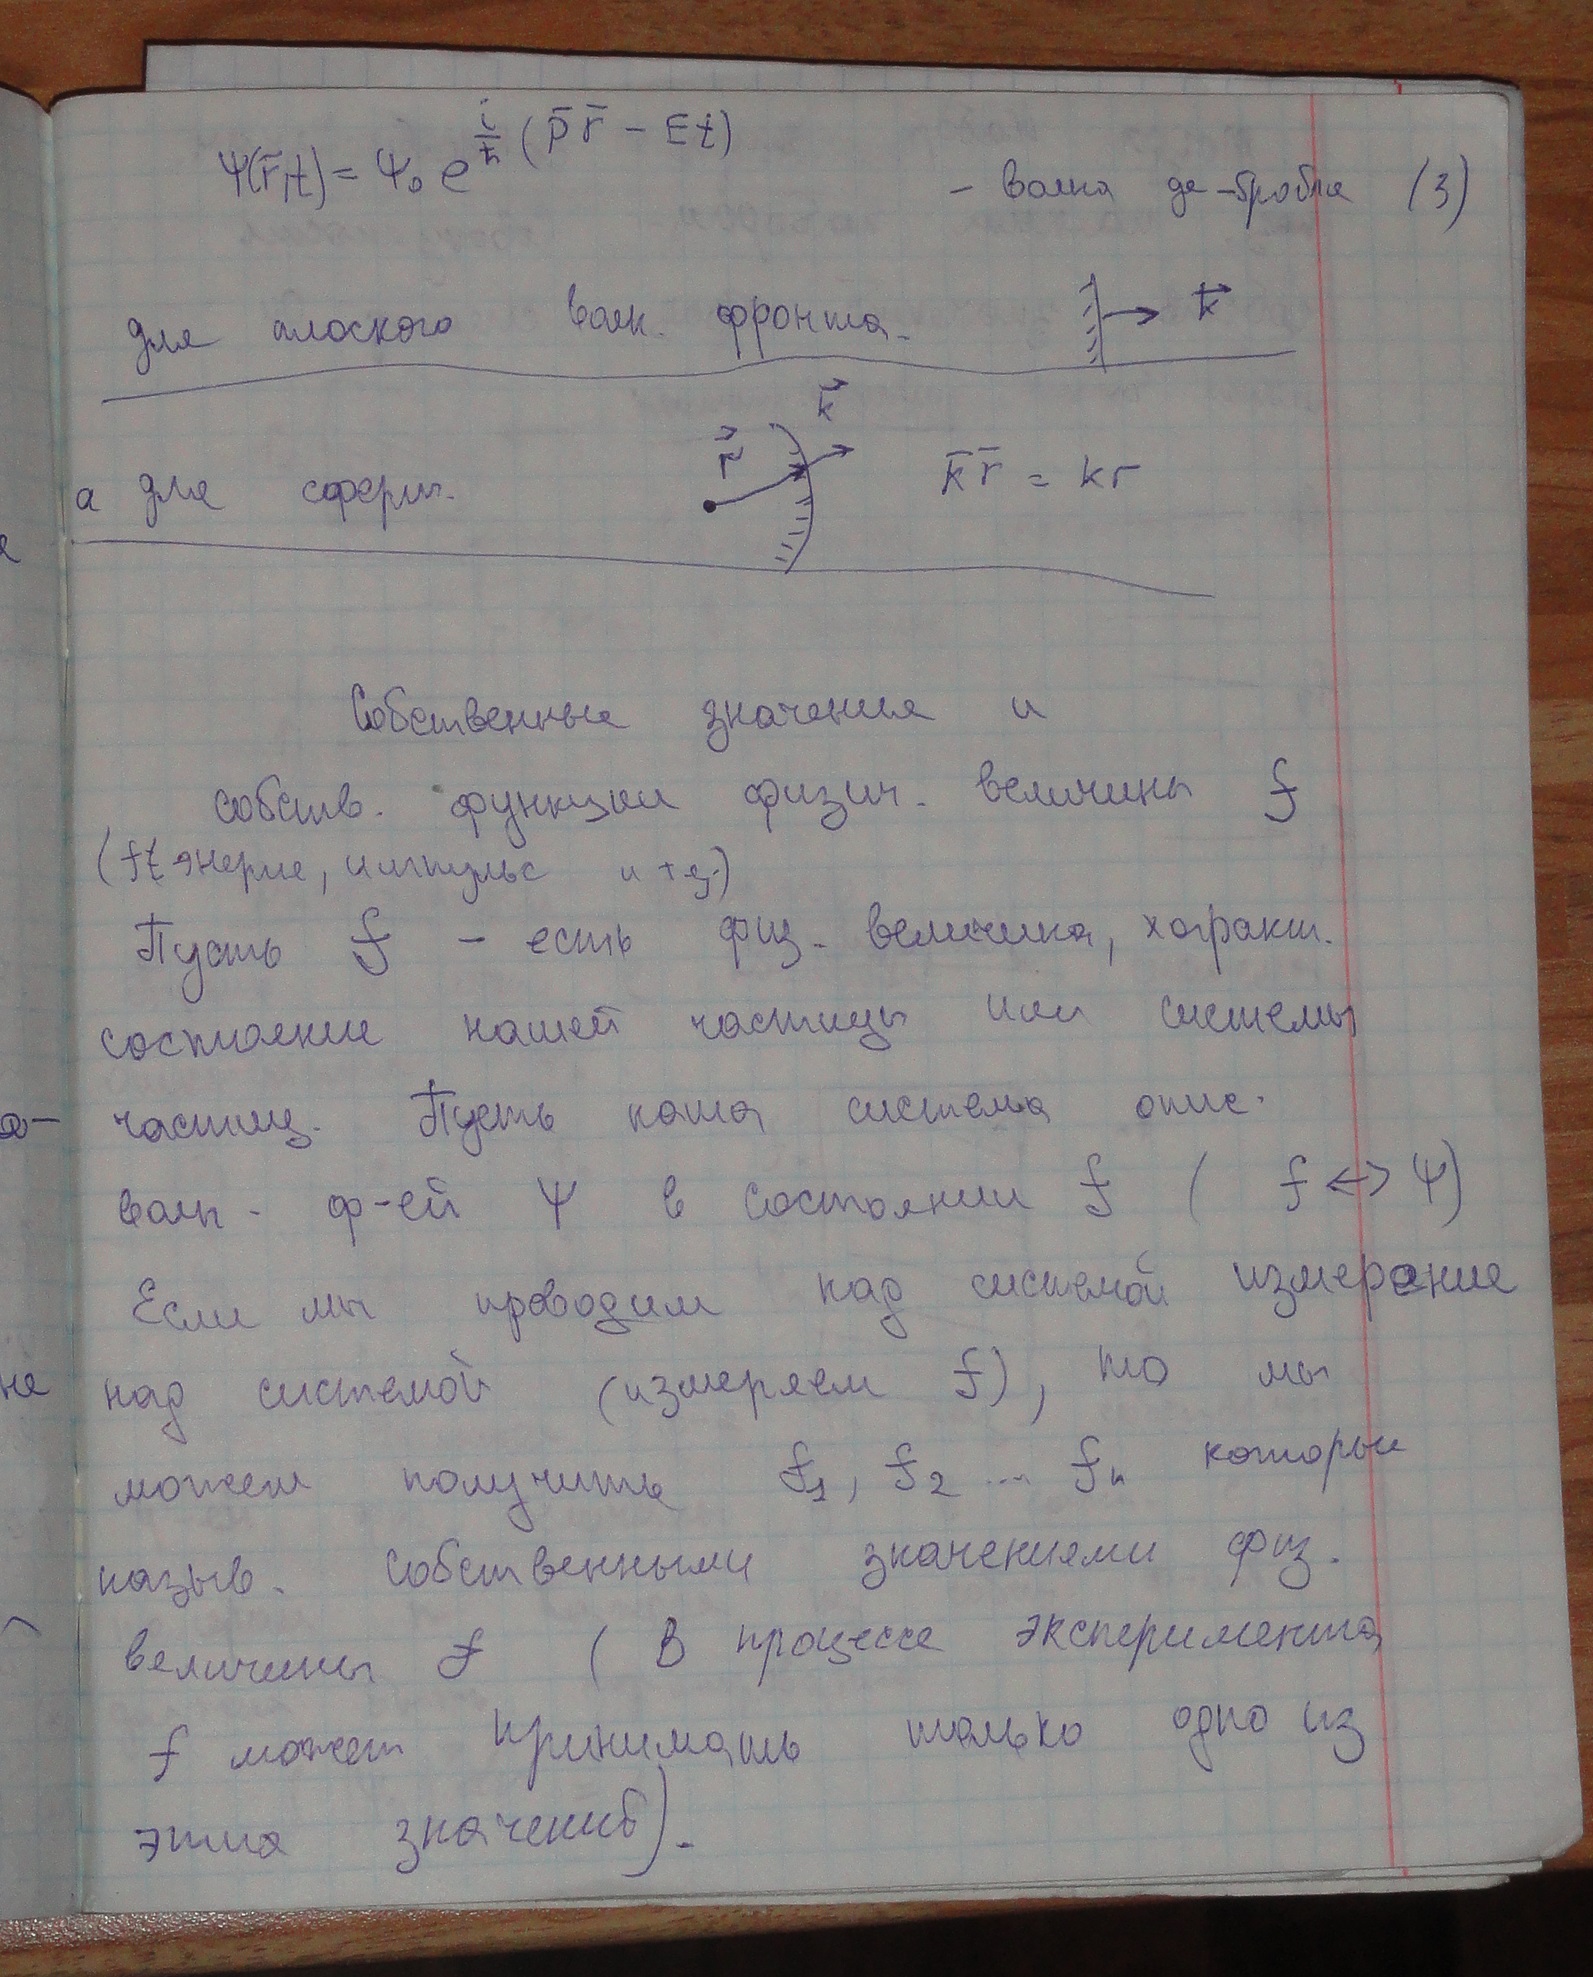 Ψ(r̄,t) = Ψ₀ e^{i/ħ (p̄ r̄ − Et)} – волна де-Бройля (3)
для плоского волн. фронта. k⃗
а для сферич. r⃗ k⃗ k̄ r̄ = kr
Собственные значения и
собств. функции физич. величины f
энергие, импульс и т.д.)
Пусть f – есть физ. величина, характ.
состояние нашей частицы или системы
частиц. Пусть наша система опис.
волн. ф-ей Ψ в состоянии f ( f ↔ Ψ)
Если мы проводим над системой измерение
над системой (измеряем f), то мы
можем получить f₁, f₂ ... fₙ которые
назыв. собственными значениями физ.
величины f ( В процессе эксперимента
f может принимать только одно из
этих значений).